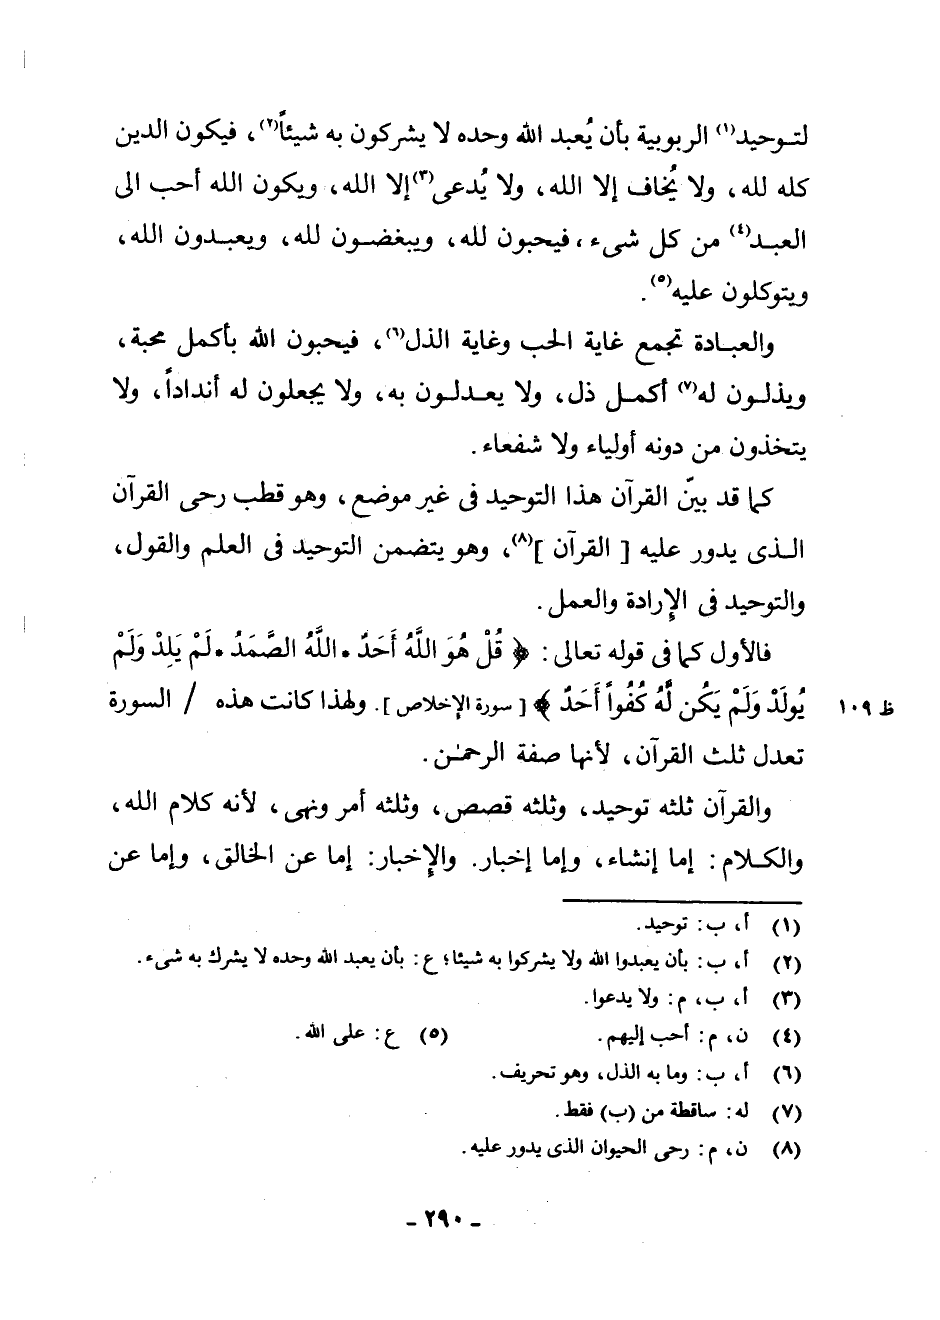 لتـوحيد(١) الربوبية بأن يُعبد الله وحده لا يشركون به شيئاً(٢)، فيكون الدين
كله لله، ولا يُخاف إلا الله، ولا يُدعى(٣) إلا الله، ويكون الله أحب الى
العبـد(٤) من كل شىء، فيحبون لله، ويبغضـون لله، ويعبـدون الله،
ويتوكلون عليه(٥).
والعبـادة تجمع غاية الحب وغاية الذل(٦)، فيحبون الله بأكمل محبة،
ويذلـون له(٧) أكمـل ذل، ولا يعـدلـون به، ولا يجعلون له أنداداً، ولا
يتخذون من دونه أولياء ولا شفعاء.
كما قد بينّ القرآن هذا التوحيد فى غير موضع، وهو قطب رحى القرآن
الـذى يدور عليه [ القرآن ](٨)، وهو يتضمن التوحيد فى العلم والقول،
والتوحيد فى الإرادة والعمل.
فالأول كما فى قوله تعالى: ﴿ قُلْ هُوَ اللَّهُ أَحَدٌ ٠ اللَّهُ الصَّمَدُ ٠ لَمْ يَلِدْ وَلَمْ
يُولَدْ وَلَمْ يَكُن لَّهُ كُفُواً أَحَدٌ ﴾ [ سورة الإخلاص ]. ولهذا كانت هذه / السورة ظ ١٠٩
تعدل ثلث القرآن، لأنها صفة الرحمٰن.
والقرآن ثلثه توحيد، وثلثه قصص، وثلثه أمر ونهى، لأنه كلام الله،
والكـلام: إما إنشاء، وإما إخبار. والإخبار: إما عن الخالق، وإما عن
(١) أ، ب: توحيد.
(٢) أ، ب: بأن يعبدوا الله ولا يشركوا به شيئا؛ ع: بأن يعبد الله وحده لا يشرك به شىء.
(٣) أ، ب، م: ولا يدعوا.
(٤) ن، م: أحب إليهم. (٥) ع: على الله.
(٦) أ، ب: وما به الذل، وهو تحريف.
(٧) له: ساقطة من (ب) فقط.
(٨) ن، م: رحى الحيوان الذى يدور عليه.
- ٢٩٠ -